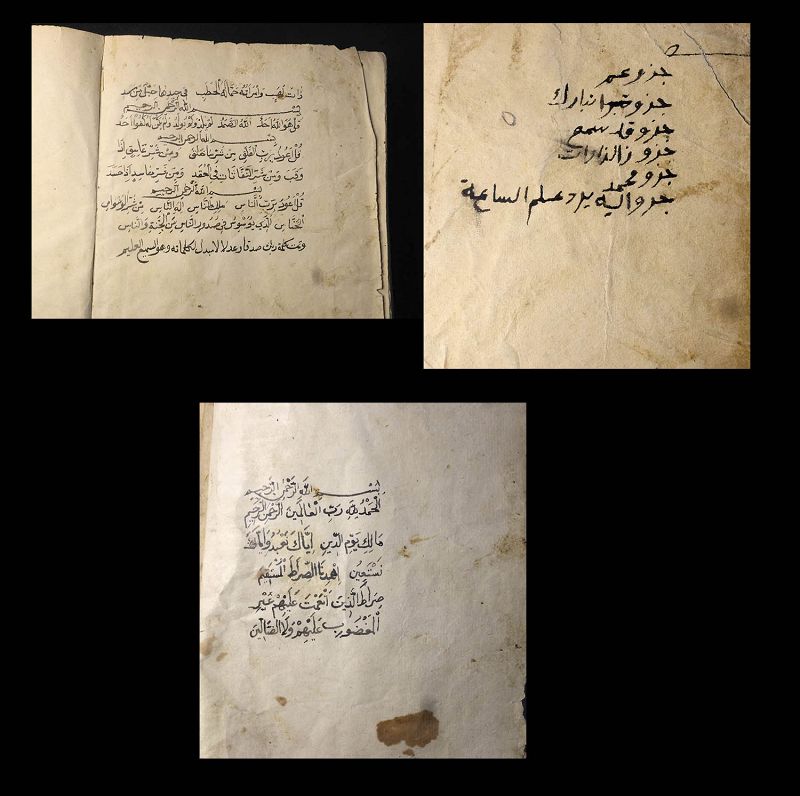 ذات لهب وامرأته حمالة الحطب في جيدها حبل من مسد
بسم الله الرحمن الرحيم
قل هو الله احد الله الصمد لم يلد ولم يولد ولم يكن له كفوا احد
بسم الله الرحمن الرحيم
قل اعوذ برب الفلق من شر ما خلق ومن شر غاسق اذا
وقب ومن شر النفاثات في العقد ومن شر حاسد اذا حسد
بسم الله الرحمن الرحيم
قل اعوذ برب الناس ملك الناس اله الناس من شر الوسواس
الخناس الذي يوسوس في صدور الناس من الجنة والناس
وتمت كلمة ربك صدقا وعدلا لا مبدل لكلماته وهو السميع العليم
جزو عم
جزو تبارك
جزو قد سمع
جزو والذاريات
جزو محمد
جزو اليه يرد علم الساعة
بِسْمِ اللهِ الرَّحْمٰنِ الرَّحِيمِ
اَلْحَمْدُ لِلّٰهِ رَبِّ الْعَالَمِينَ الرَّحْمٰنِ الرَّحِيمِ
مَالِكِ يَوْمِ الدِّينِ اِيَّاكَ نَعْبُدُ وَاِيَّاكَ
نَسْتَعِينُ اِهْدِنَا الصِّرَاطَ الْمُسْتَقِيمَ
صِرَاطَ الَّذِينَ اَنْعَمْتَ عَلَيْهِمْ غَيْرِ
الْمَغْضُوبِ عَلَيْهِمْ وَلَا الضَّالِّينَ